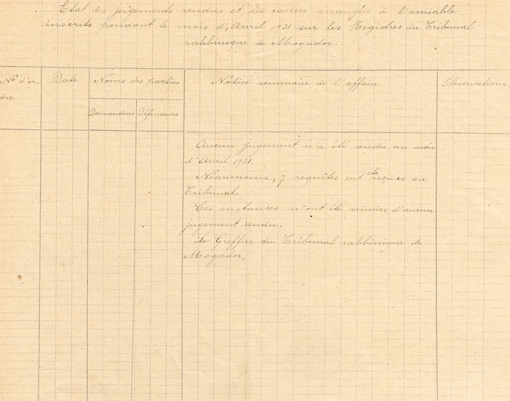 Etat des jugements rendus et des causes arrangées à l'amiable
inscrits pendant le mois d'Avril 1931 sur les Registres du Tribunal
rabbinique de Mogador.
N° d'or
dre
Date
Noms des parties
Demandeurs
Défendeurs
Notice sommaire de l'affaire
Observations.
Aucun jugement n'a été rendu au mois
d'Avril 1931.
Néanmoins, 7 requêtes ont été reçues au
Tribunal.
Ces instances n'ont été suivies d'aucun
jugement rendu.
Le Greffier du Tribunal rabbinique de
Mogador,